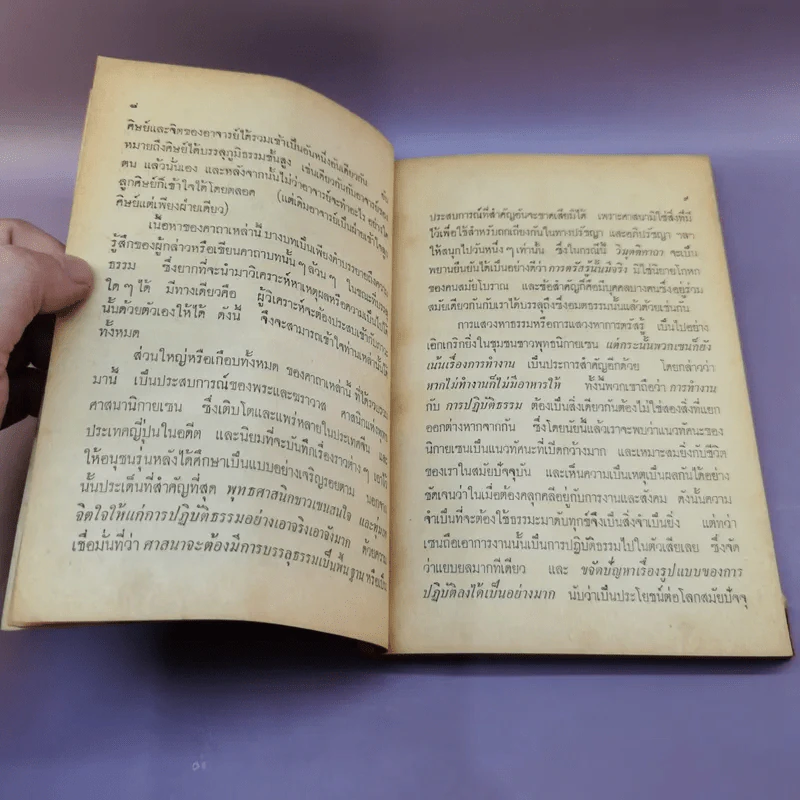 ๘
ศิษย์และจิตของอาจารย์ได้รวมเข้าเป็นอันหนึ่งอันเดียวกัน อัน
หมายถึงศิษย์ได้บรรลุภูมิธรรมขั้นสูง เช่นเดียวกันกับอาจารย์ของ
ตน แล้วนั้นเอง และหลังจากนั้นไม่ว่าอาจารย์จะทำอะไร อย่างใด
ลูกศิษย์ก็เข้าใจได้โดยตลอด (แต่เดิมอาจารย์เป็นฝ่ายเข้าใจลูก
ศิษย์แต่เพียงฝ่ายเดียว)
เนื้อหาของคาถาเหล่านี้ บางบทเป็นเพียงคำบรรยายถึงความ
รู้สึกของผู้กล่าวหรือเขียนคาถาบทนั้น ๆ ล้วน ๆ ในขณะที่บรรลุ
ธรรม ซึ่งยากที่จะนำมาวิเคราะห์หาเหตุผลหรือความเป็นไปได้
ใด ๆ ได้ มีทางเดียวคือ ผู้วิเคราะห์จะต้องประสบเข้ากับภาวะ
นั้นด้วยตัวเองให้ได้ ดังนี้ จึงจะสามารถเข้าใจท่านเหล่านั้นได้
ทั้งหมด
ส่วนใหญ่หรือเกือบทั้งหมด ของคาถาเหล่านี้ ที่ได้รวบรวม
มานี้ เป็นประสบการณ์ของพระและฆราวาส ศาสนิกแห่งพุทธ
ศาสนานิกายเซน ซึ่งเติบโตและแพร่หลายในประเทศจีน และ
ประเทศญี่ปุ่นในอดีต และนิยมที่จะบันทึกเรื่องราวต่าง ๆ เอาไว้
ให้อนุชนรุ่นหลังได้ศึกษาเป็นแบบอย่างเจริญรอยตาม นอกจาก
นั้นประเด็นที่สำคัญที่สุด พุทธศาสนิกชาวเซนสนใจ และทุ่มเท
จิตใจให้แก่การปฏิบัติธรรมอย่างเอาจริงเอาจังมาก ด้วยความ
เชื่อมั่นที่ว่า ศาสนาจะต้องมีการบรรลุธรรมเป็นพื้นฐาน หรือเป็น
๙
ประสบการณ์ที่สำคัญอันจะขาดเสียมิได้ เพราะศาสนามิใช่สิ่งที่มี
ไว้เพื่อใช้สำหรับถกเถียงกันในทางปรัชญา และอภิปรัชญา ฯลฯ
ให้สนุกไปวันหนึ่ง ๆ เท่านั้น ซึ่งในกรณีนี้ วิมุตติคาถา จะเป็น
พยานยืนยันได้เป็นอย่างดีว่า การตรัสรู้นั้นมีจริง มิใช่นิยายโกหก
ของคนสมัยโบราณ และข้อสำคัญก็คือมีบุคคลบางคนซึ่งอยู่ร่วม
สมัยเดียวกันกับเราได้บรรลุถึงซึ่งอมตธรรมนั้นแล้วด้วยเช่นกัน
การแสวงหาธรรมหรือการแสวงหาการตรัสรู้ เป็นไปอย่าง
เอิกเกริกยิ่งในชุมชนชาวพุทธนิกายเซน แต่กระนั้นพวกเซนก็ยัง
เน้นเรื่องการทำงาน เป็นประการสำคัญอีกด้วย โดยกล่าวว่า
หากไม่ทำงานก็ไม่มีอาหารให้ ทั้งนี้พวกเขาถือว่า การทำงาน
กับ การปฏิบัติธรรม ต้องเป็นสิ่งเดียวกันต้องไม่ใช่สองสิ่งที่แยก
ออกต่างหากจากกัน ซึ่งโดยนัยนี้แล้วเราจะพบว่าแนวทัศนะของ
นิกายเซนเป็นแนวทัศนะที่เปิดกว้างมาก และเหมาะสมยิ่งกับชีวิต
ของเราในสมัยปัจจุบัน และเห็นความเป็นเหตุเป็นผลกันได้อย่าง
ชัดเจนว่าในเมื่อต้องคลุกคลีอยู่กับการงานและสังคม ดังนั้นความ
จำเป็นที่จะต้องใช้ธรรมะมาดับทุกข์จึงเป็นสิ่งจำเป็นยิ่ง แต่ทว่า
เซนถือเอาการงานนั้นเป็นการปฏิบัติธรรมไปในตัวเสียเลย ซึ่งจัด
ว่าแยบยลมากทีเดียว และ ขจัดปัญหาเรื่องรูปแบบของการ
ปฏิบัติลงได้เป็นอย่างมาก นับว่าเป็นประโยชน์ต่อโลกสมัยปัจจุ